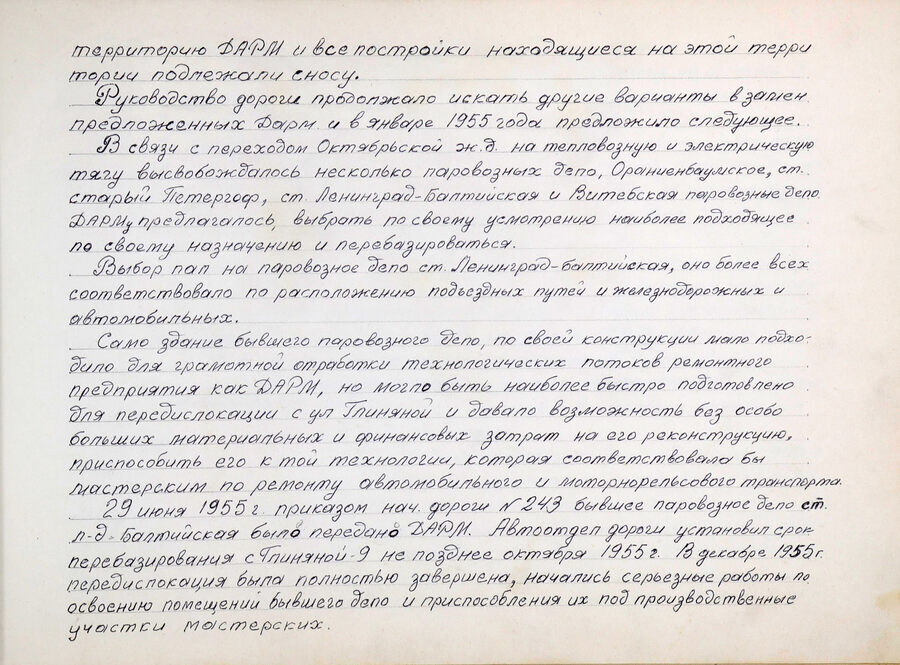 территорию ДАРМ и все постройки находящиеся на этой терри
тории подлежали сносу.
Руководство дороги продолжало искать другие варианты в замен
предложенных Дарм и в январе 1955 года предложило следующее.
В связи с переходом Октябрьской ж.д. на тепловозную и электрическую
тягу высвобождалось несколько паровозных депо, Ораниенбаумское, ст.
старый Петергоф, ст. Ленинград-Балтийская и Витебская паровозные депо.
ДАРМу предлагалось, выбрать по своему усмотрению наиболее подходящее
по своему назначению и перебазироваться.
Выбор пал на паровозное депо ст. Ленинград-балтийская, оно более всех
соответствовало по расположению подьездных путей и железнодорожных и
автомобильных.
Само здание бывшего паровозного депо, по своей конструкции мало подхо-
дило для грамотной отработки технологических потоков ремонтного
предприятия как ДАРМ, но могло быть наиболее быстро подготовлено
для передислокации с ул Глиняной и давало возможность без особо
больших материальных и финансовых затрат на его реконструкцию,
приспособить его к той технологии, которая соответствовала бы
мастерским по ремонту автомобильного и моторнорельсового транспорта.
29 июня 1955 г. приказом нач. дороги № 243 бывшее паровозное депо ст.
л-д-Балтийская было передано ДАРМ. Автоотдел дороги установил срок
перебазирования с Глиняной-9 не позднее октября 1955 г. В декабре 1955 г.
передислокация была полностью завершена, начались серьезные работы по
освоению помещений бывшего депо и приспособления их под производственные
участки мастерских.